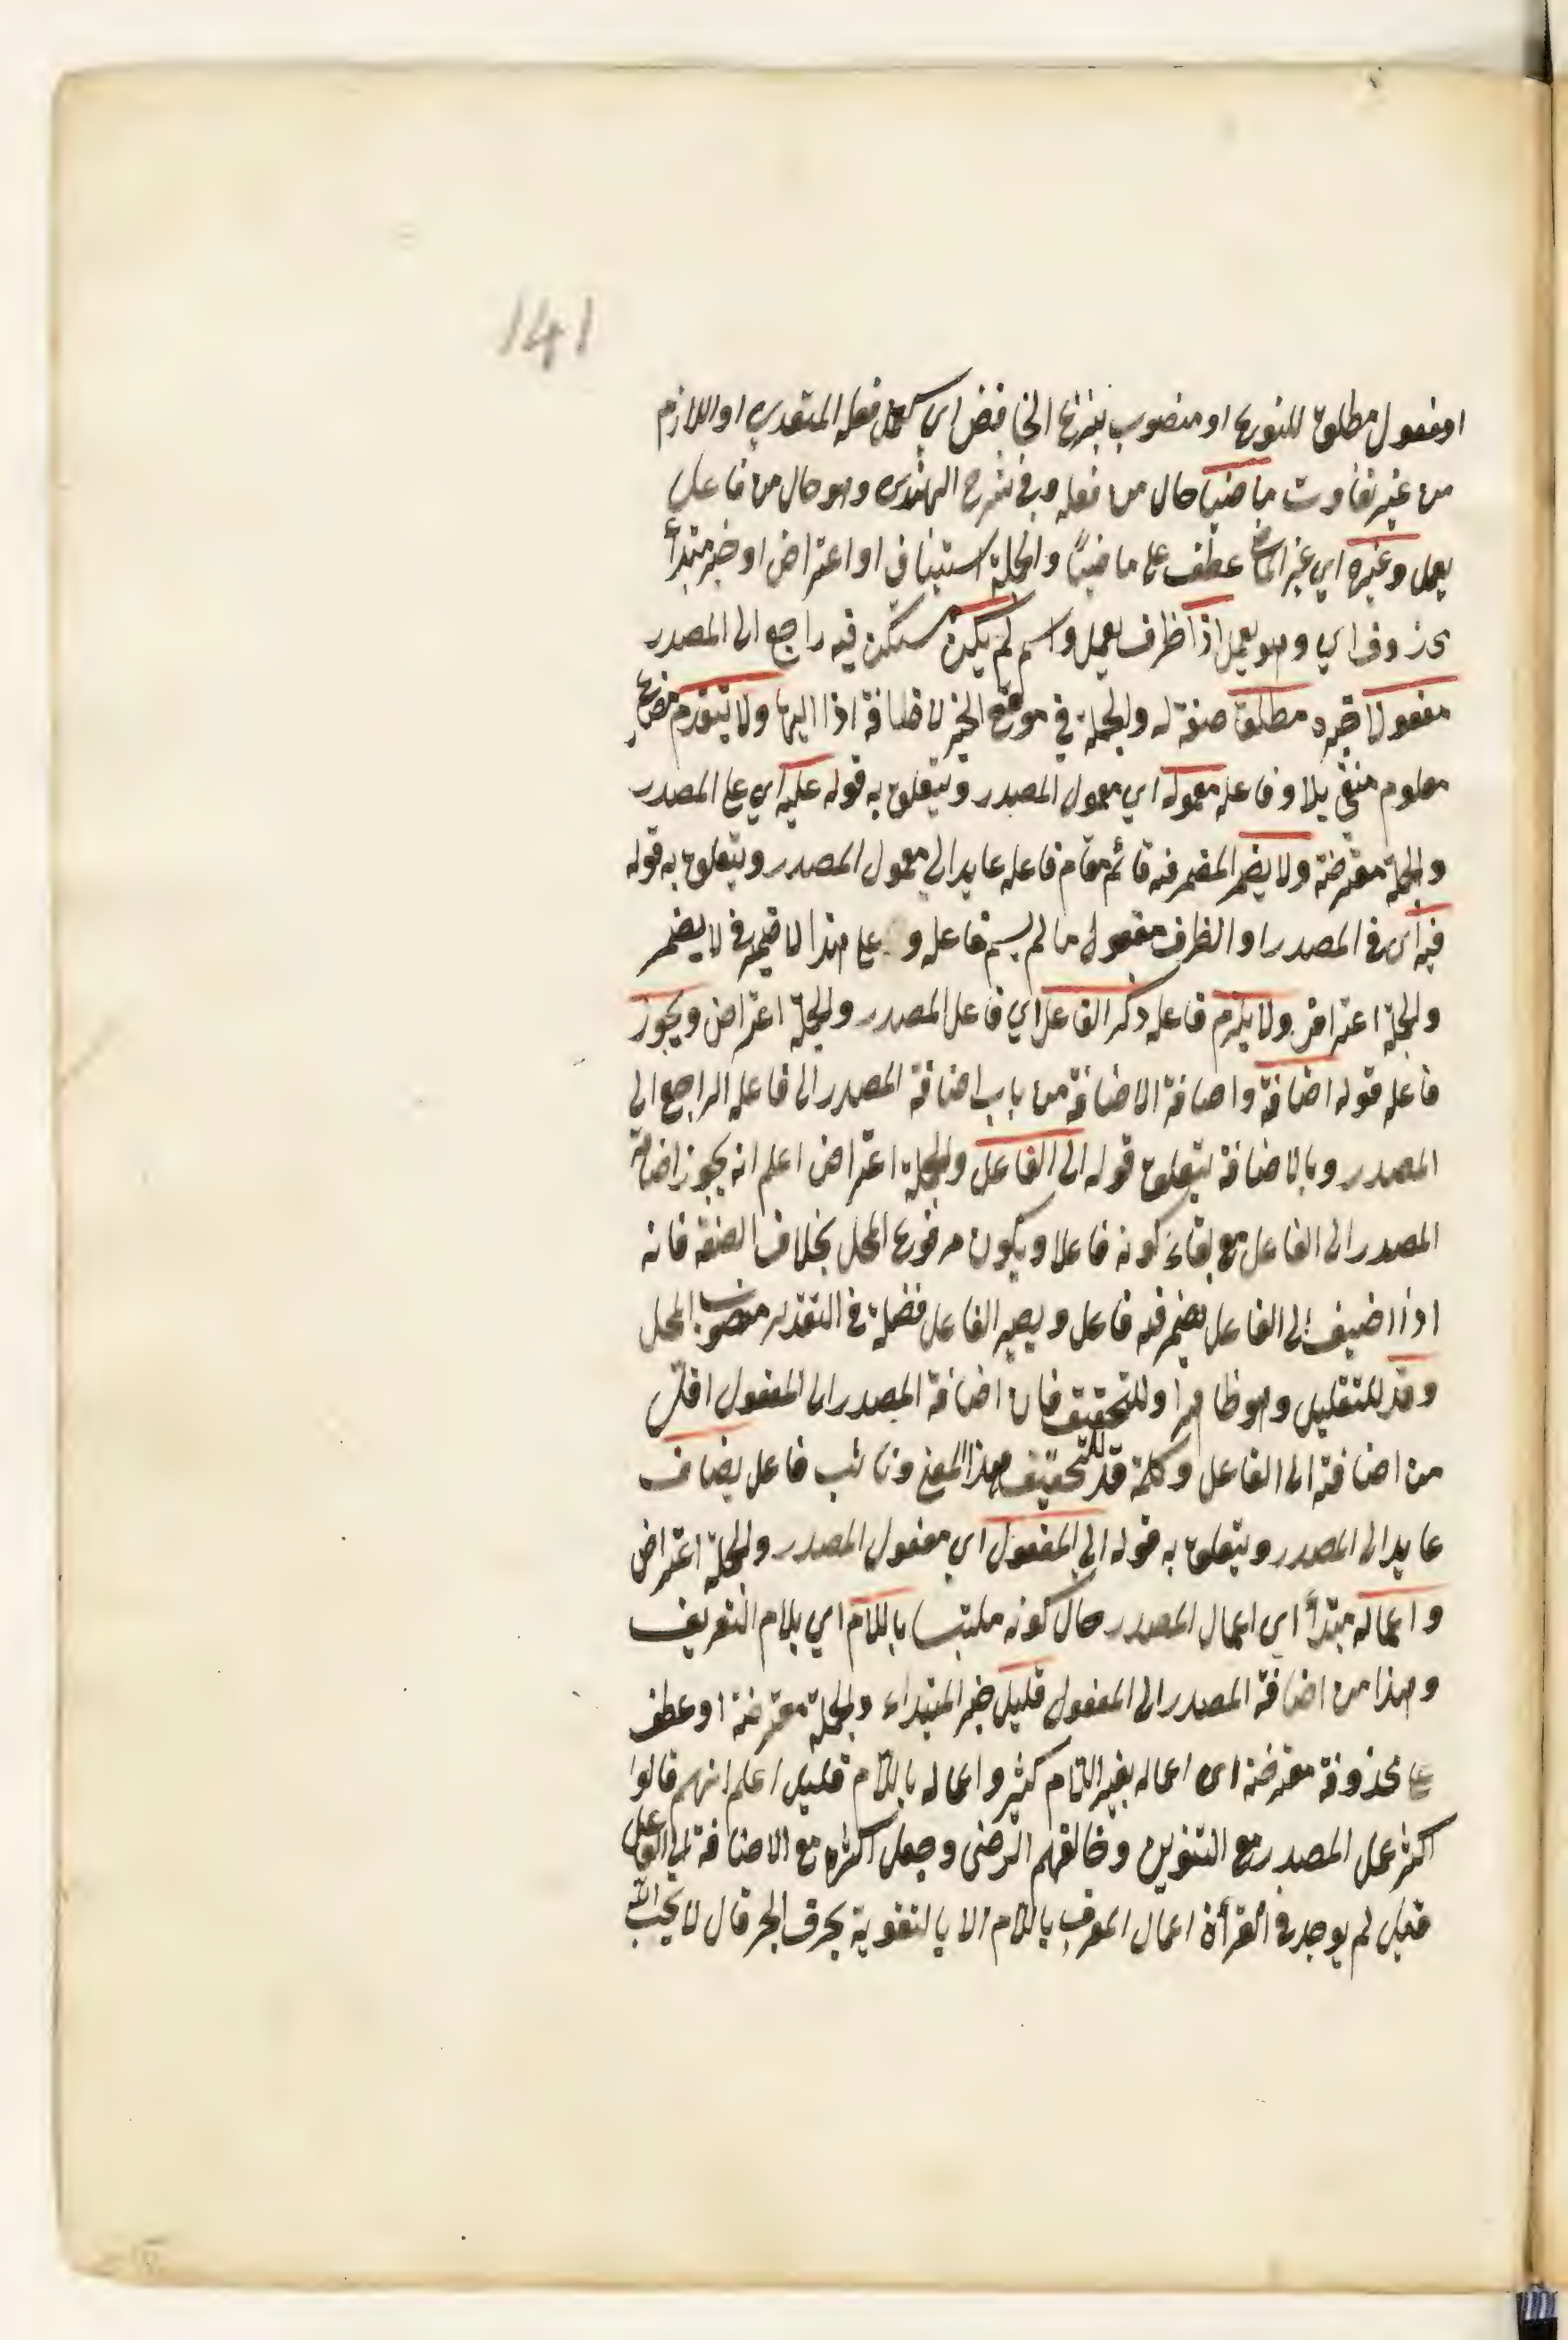 141
او مفعول مطلق للنوع او منصوب بنزع الخافض اي كعمل فعله المتعدي او اللازم
من غير تفاوت ماضيا حال من فعله وفي شرح الهندي وهو حال من فاعل
يعمل وغيره اي غير الماضي عطف على ماضيا والجملة استيناف او اعتراض او خبر مبتدأ
محذوف اي وهو يعمل اذا ظرف يعمل واسم لم يكن مستكن فيه راجع الى المصدر
مفعولا خبره مطلقا صفة له والجملة في موضع الجر لاضافة اذا اليها ولا يتقدم مضارع
معلوم منفي بلا وفاعله معموله اي معمول المصدر ويتعلق به قوله عليه اي على المصدر
والجملة معترضة ولا يضمر المضمر فيه قائم مقام فاعله عايد الى معمول المصدر ويتعلق به قوله
فيه اى في المصدر او الظرف مفعول ما لم يسم فاعله و على هذا لا ضمير في لا يضمر
والجملة اعتراض ولا يلزم فاعله ذكر الفاعل اي فاعل المصدر والجملة اعتراض ويجوز
فاعله قوله اضافة واضافة الاضافة من باب اضافة المصدر الى فاعله الراجع الى
المصدر وبالاضافة يتعلق قوله الى الفاعل والجملة اعتراض اعلم انه يجوز اضافة
المصدر الى الفاعل مع بقاء كونه فاعلا ويكون مرفوع المحل بخلاف الصفة فانه
اذا اضيف الى الفاعل يضمر فيه فاعل ويصير الفاعل فضلة في التقدير منصوب المحل
وقد للتقليل وهو ظاهر او للتحقيق فان اضافة المصدر الى المفعول اقل
من اضافته الى الفاعل وكلمة قد للتحقيق بهذا المعنى ونائب فاعل يضاف
عايد الى المصدر ويتعلق به قوله الى المفعول اي مفعول المصدر والجملة اعتراض
واعماله مبتدأ اي اعمال المصدر حال كونه ملتبسا باللام اي بلام التعريف
وهذا من اضافة المصدر الى المفعول قليل خبر المبتداء والجملة معترضة او عطف
على محذوفة معترضة اى اعماله بغير اللام كثير واعماله باللام قليل اعلم انهم قالوا
اكثر عمل المصدر مع التنوين وخالفهم الرضى وجعل اكثره مع الاضافة الى الفاعل
قيل لم يوجد في القرأن اعمال المعرف باللام الا بالتقوية بحرف الجر قال لا يحب الله